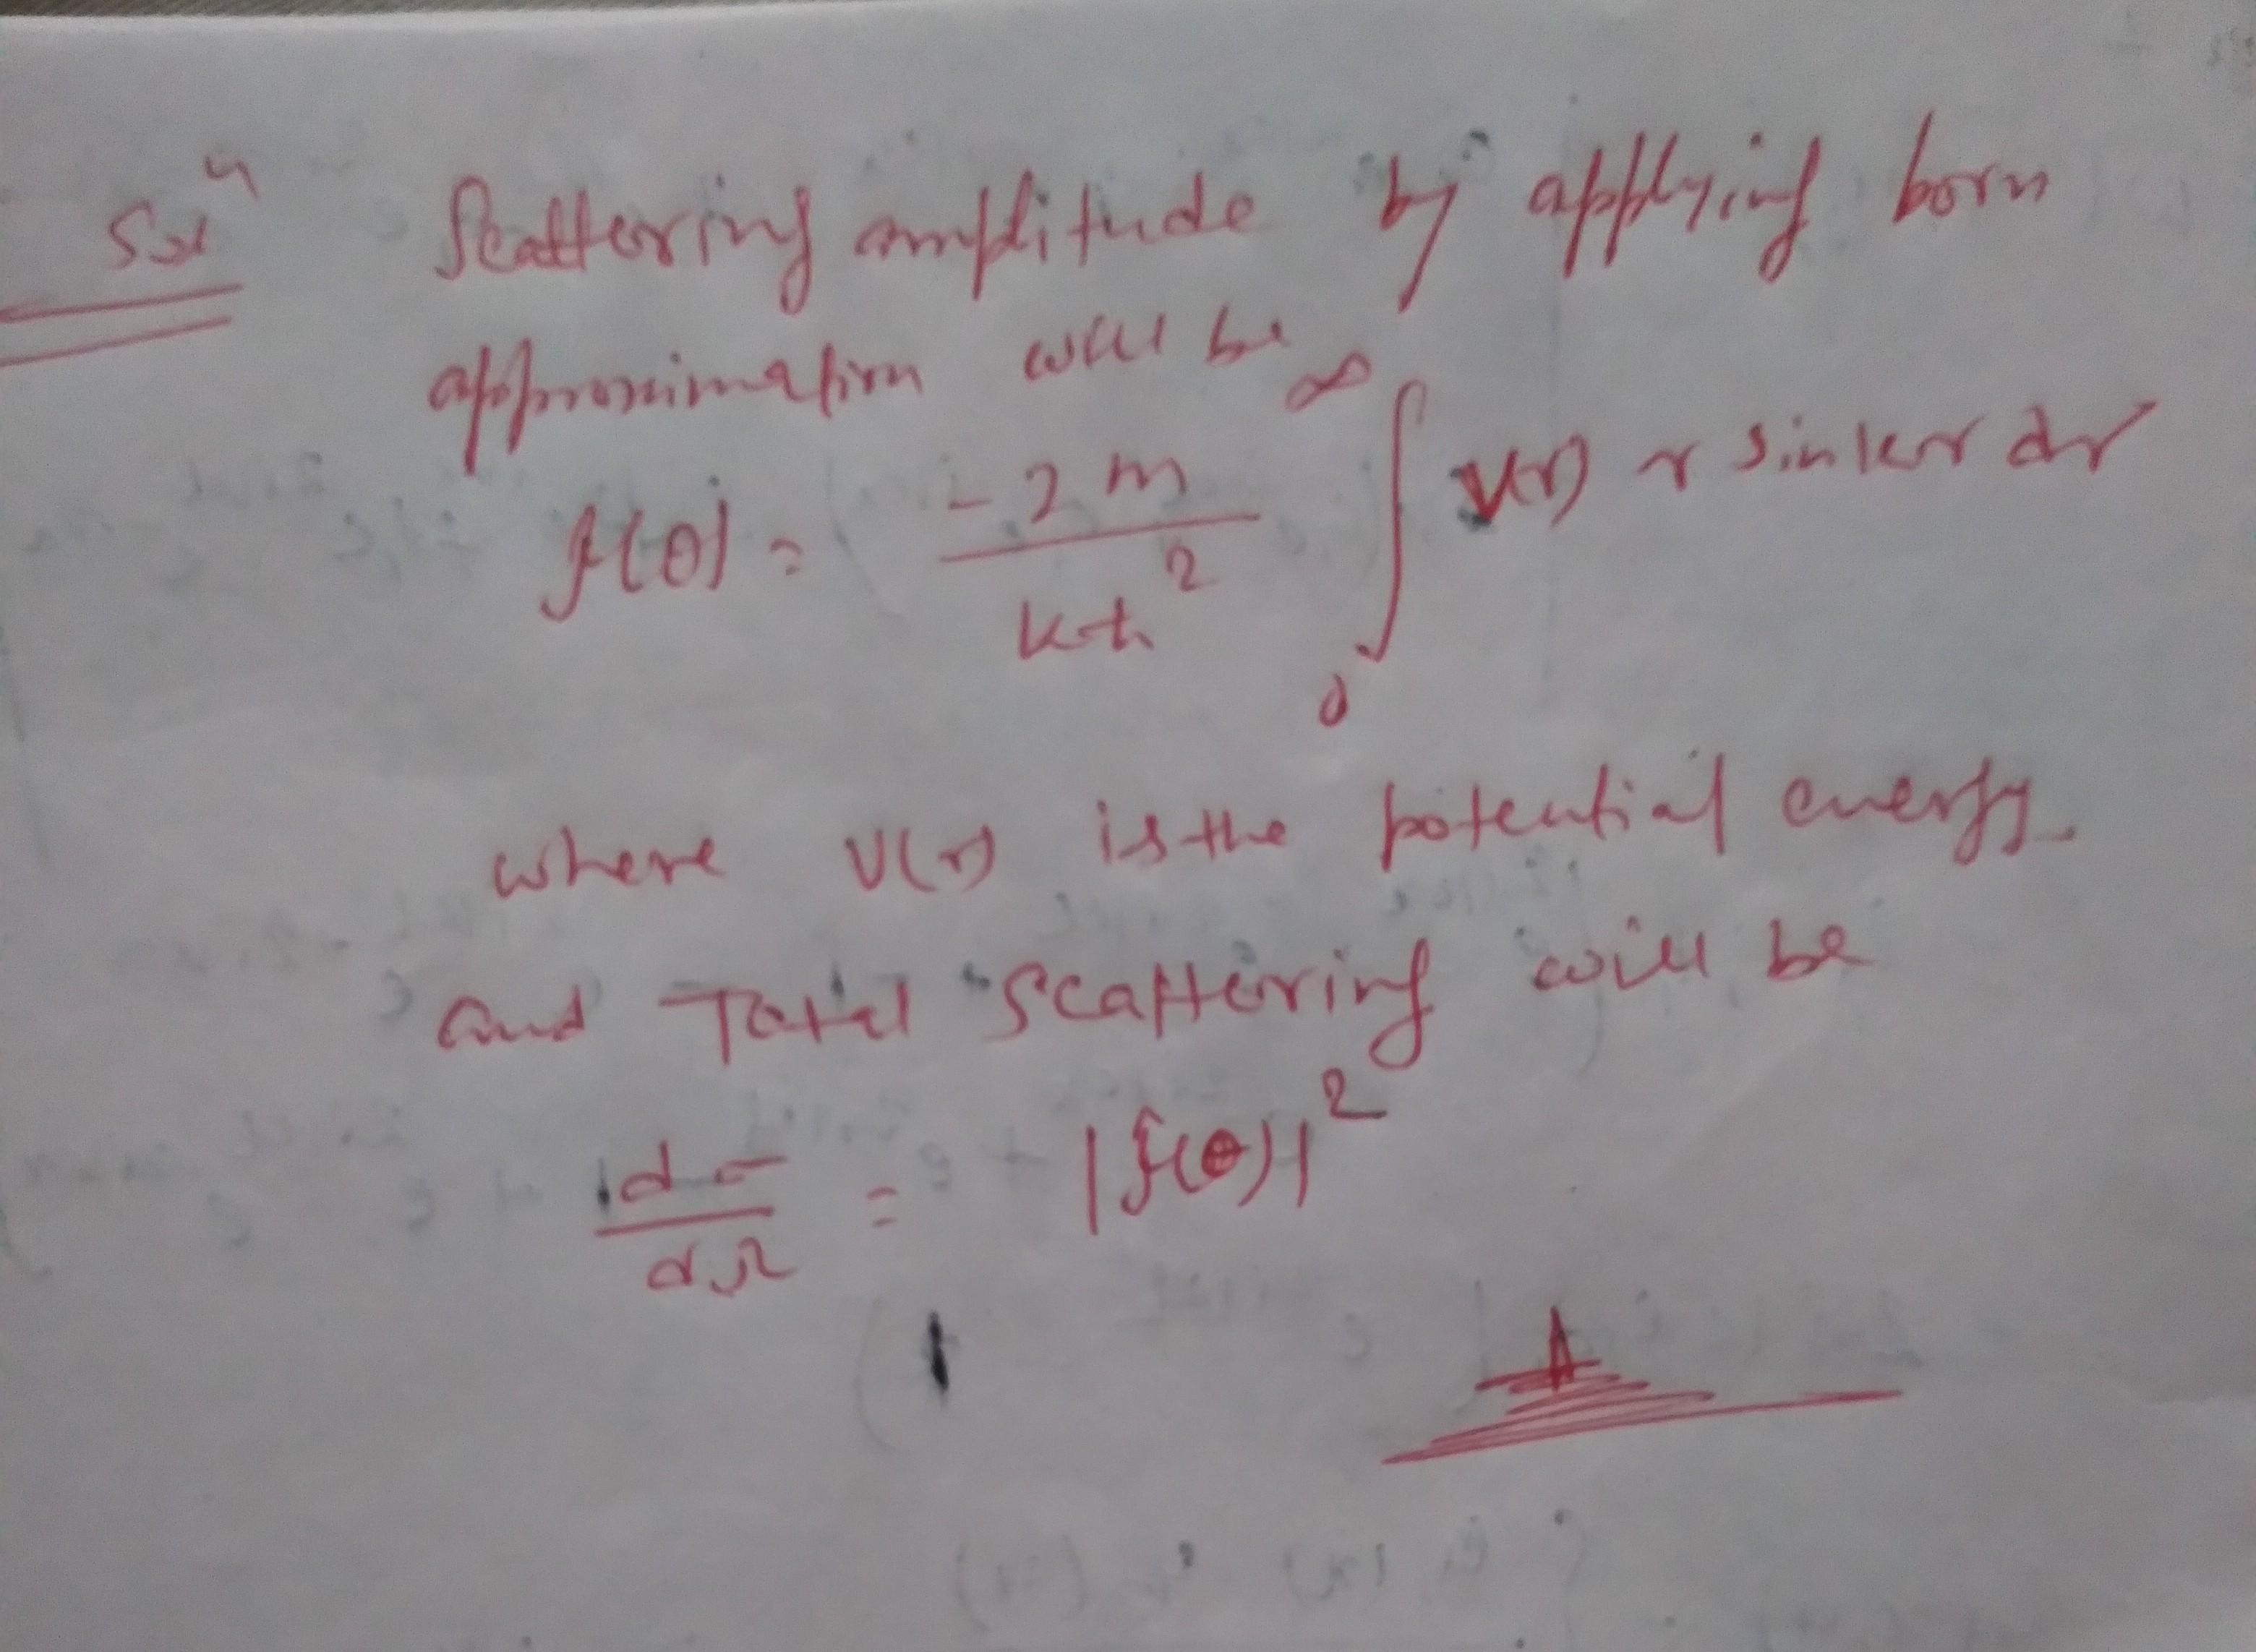 Solⁿ Scattering amplitude by applying born
approximation will be
f(θ) = -2m / kħ² ∫₀^∞ V(r) r sinkr dr
where V(r) is the potential energy.
and Total scattering will be
dσ / dΩ = |f(θ)|²
A